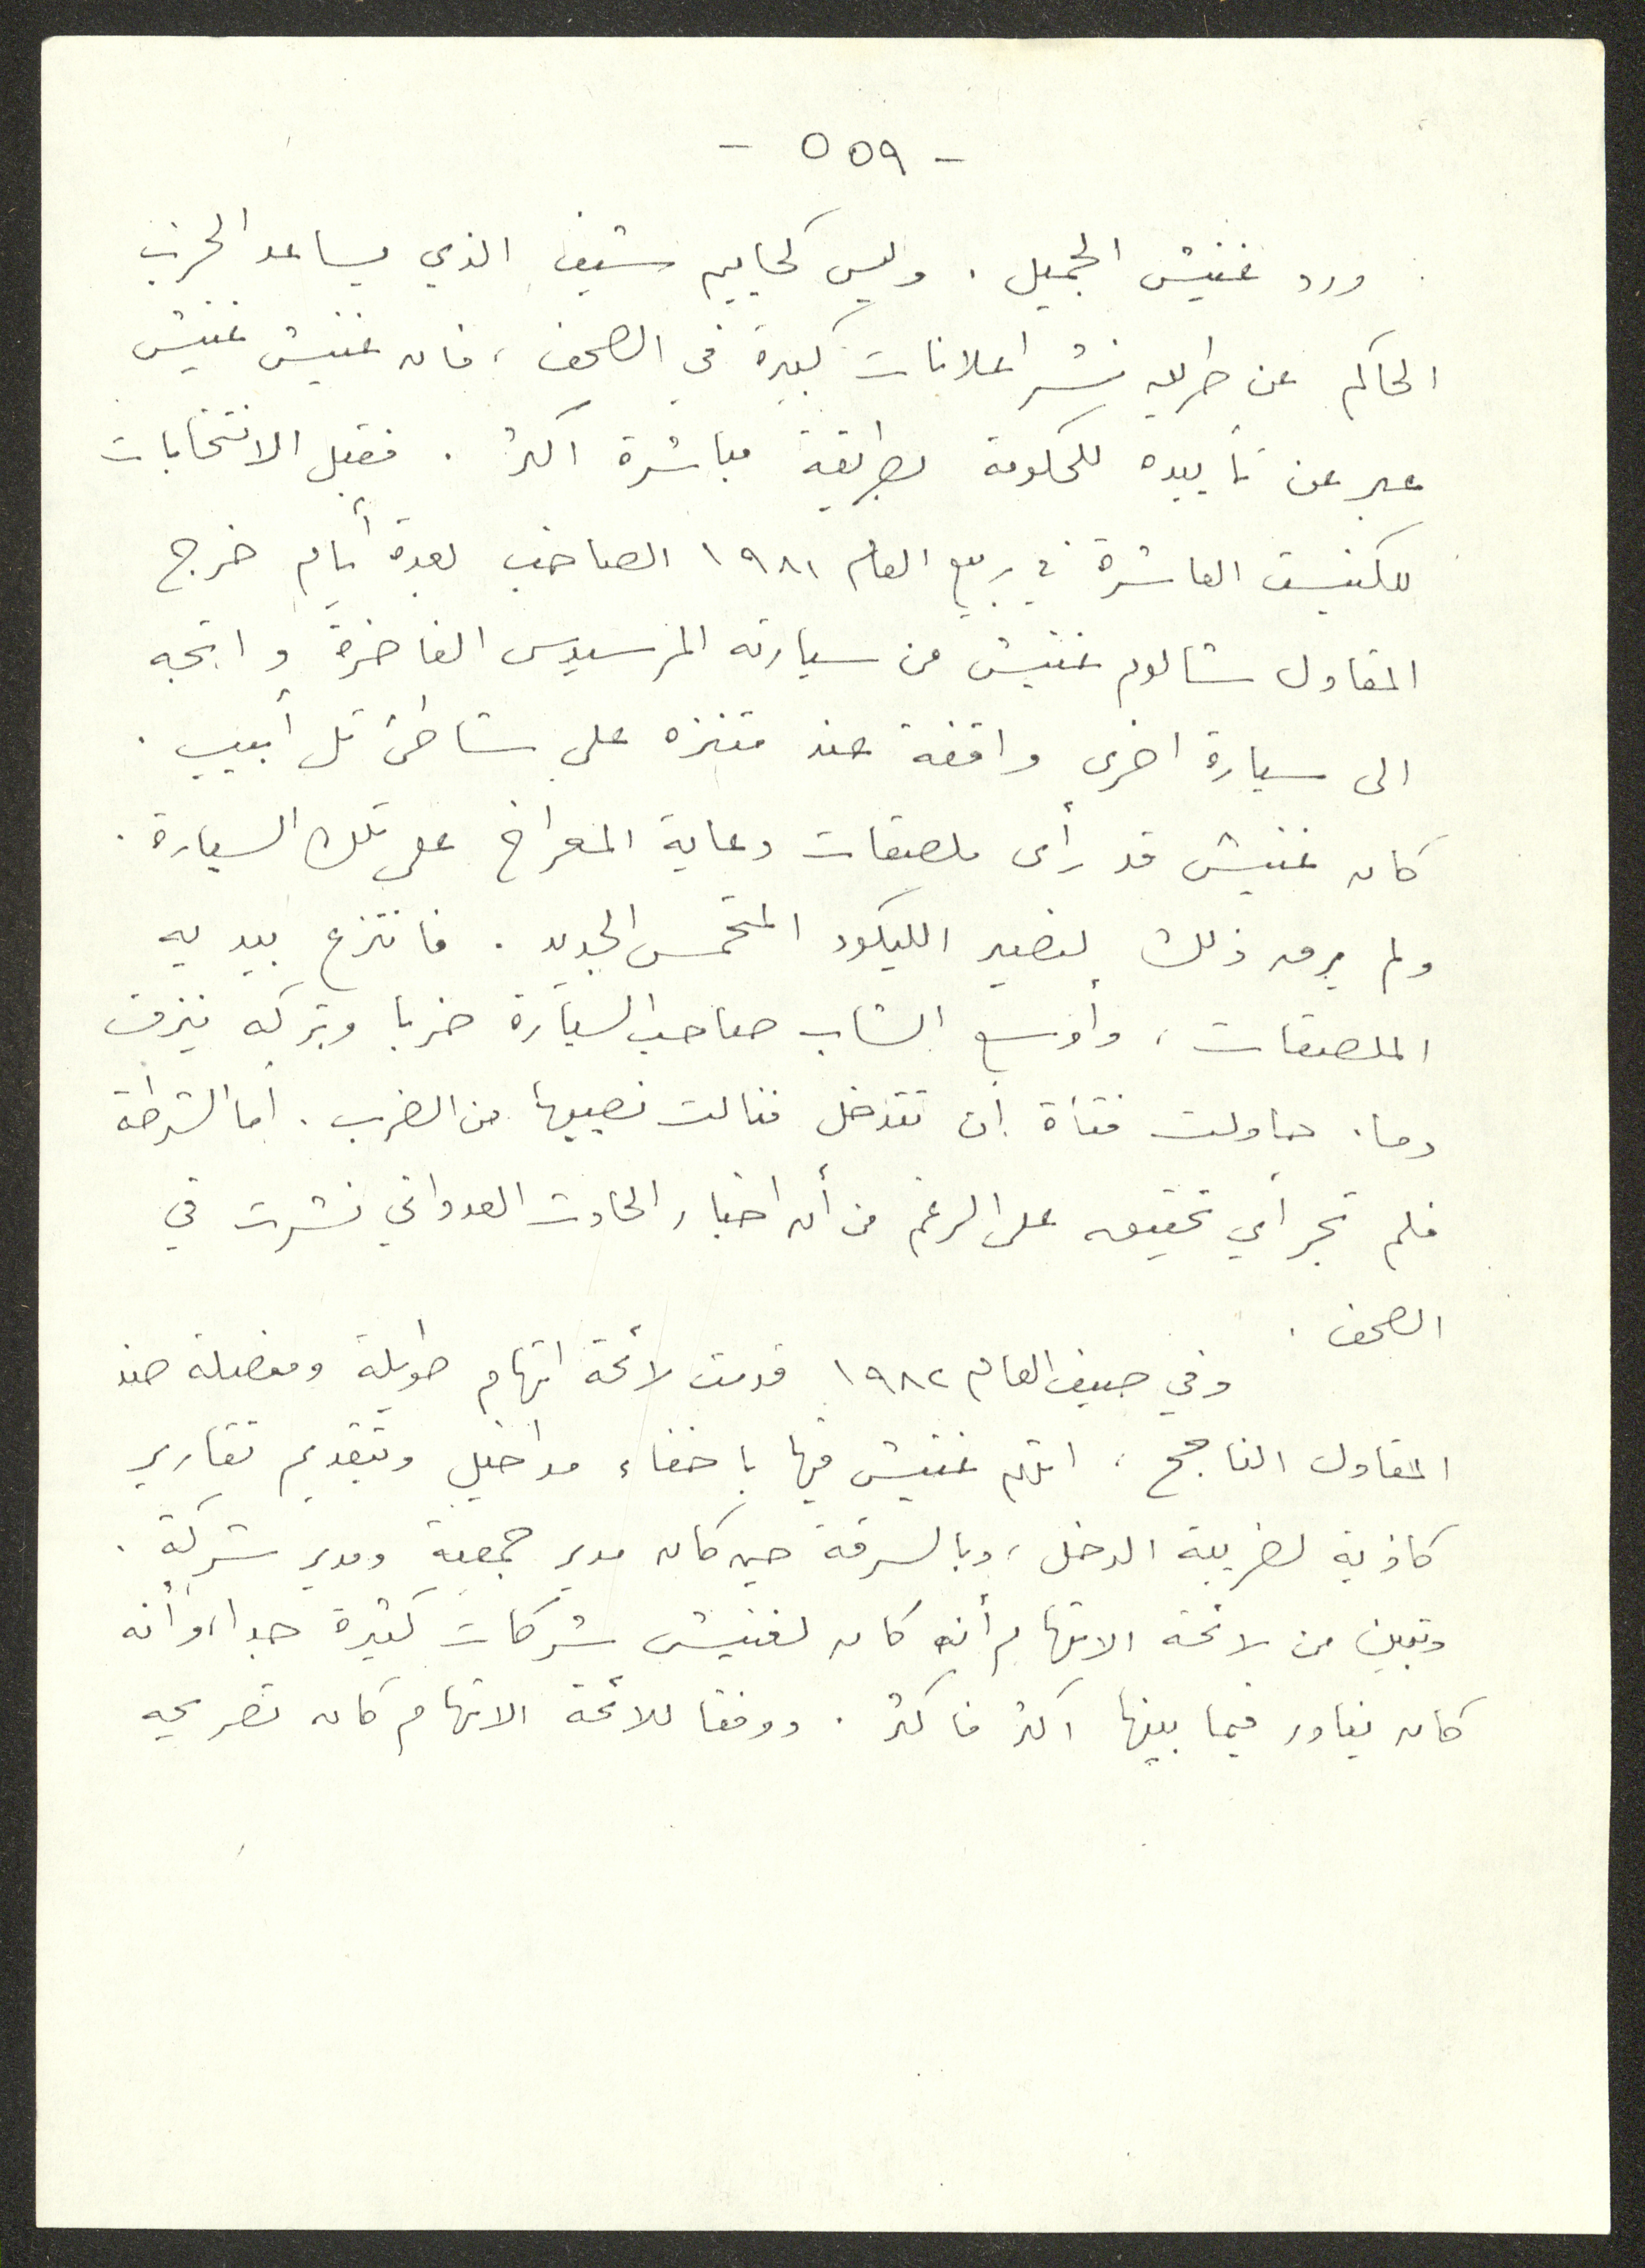 - ٥٥٩ -
ورد غنيش الجميل . وليس كحاييم شيف الذي يساعد الحزب
الحاكم عن طريق نشر اعلانات كبيرة في الصحف ، فان غنيش غنيش
عبر عن تأييده للحكومة بطريقة مباشرة اكثر . فقبل الانتخابات
للكنيست العاشرة في ربيع العام ١٩٨١ الصاخب بعدة أيام خرج
المقاول شالوم غنيش من سيارته المرسيدس الفاخرة و اتجه
الى سيارة اخرى واقفة عند متنزه على شاطئ تل أبيب .
كان غنيش قد رأى ملصقات دعاية المعراخ على تلك السيارة .
ولم يرق ذلك لنصير الليكود المتحمس الجديد . فانتزع بيديه
الملصقات ، وأوسع الشاب صاحب السيارة ضربا وتركه ينزف
دما . حاولت فتاة أن تتدخل فنالت نصيبها من الضرب . أما الشرطة
فلم تجر أي تحقيق على الرغم من أن اخبار الحادث العدواني نشرت في
الصحف .
وفي صيف العام ١٩٨٢ قدمت لائحة اتهام طويلة ومفصلة ضد
المقاول الناجح ، اتهم غنيش فيها باخفاء مداخيل وبتقديم تقارير
كاذبة لضريبة الدخل ، وبالسرقة حين كان مدير جمعية ومدير شركة .
وتبين من لائحة الاتهام أنه كان لغنيش شركات كثيرة جدا ، وأنه
كان يناور فيما بينها اكثر فاكثر . ووفقا للائحة الاتهام كان تصريحه